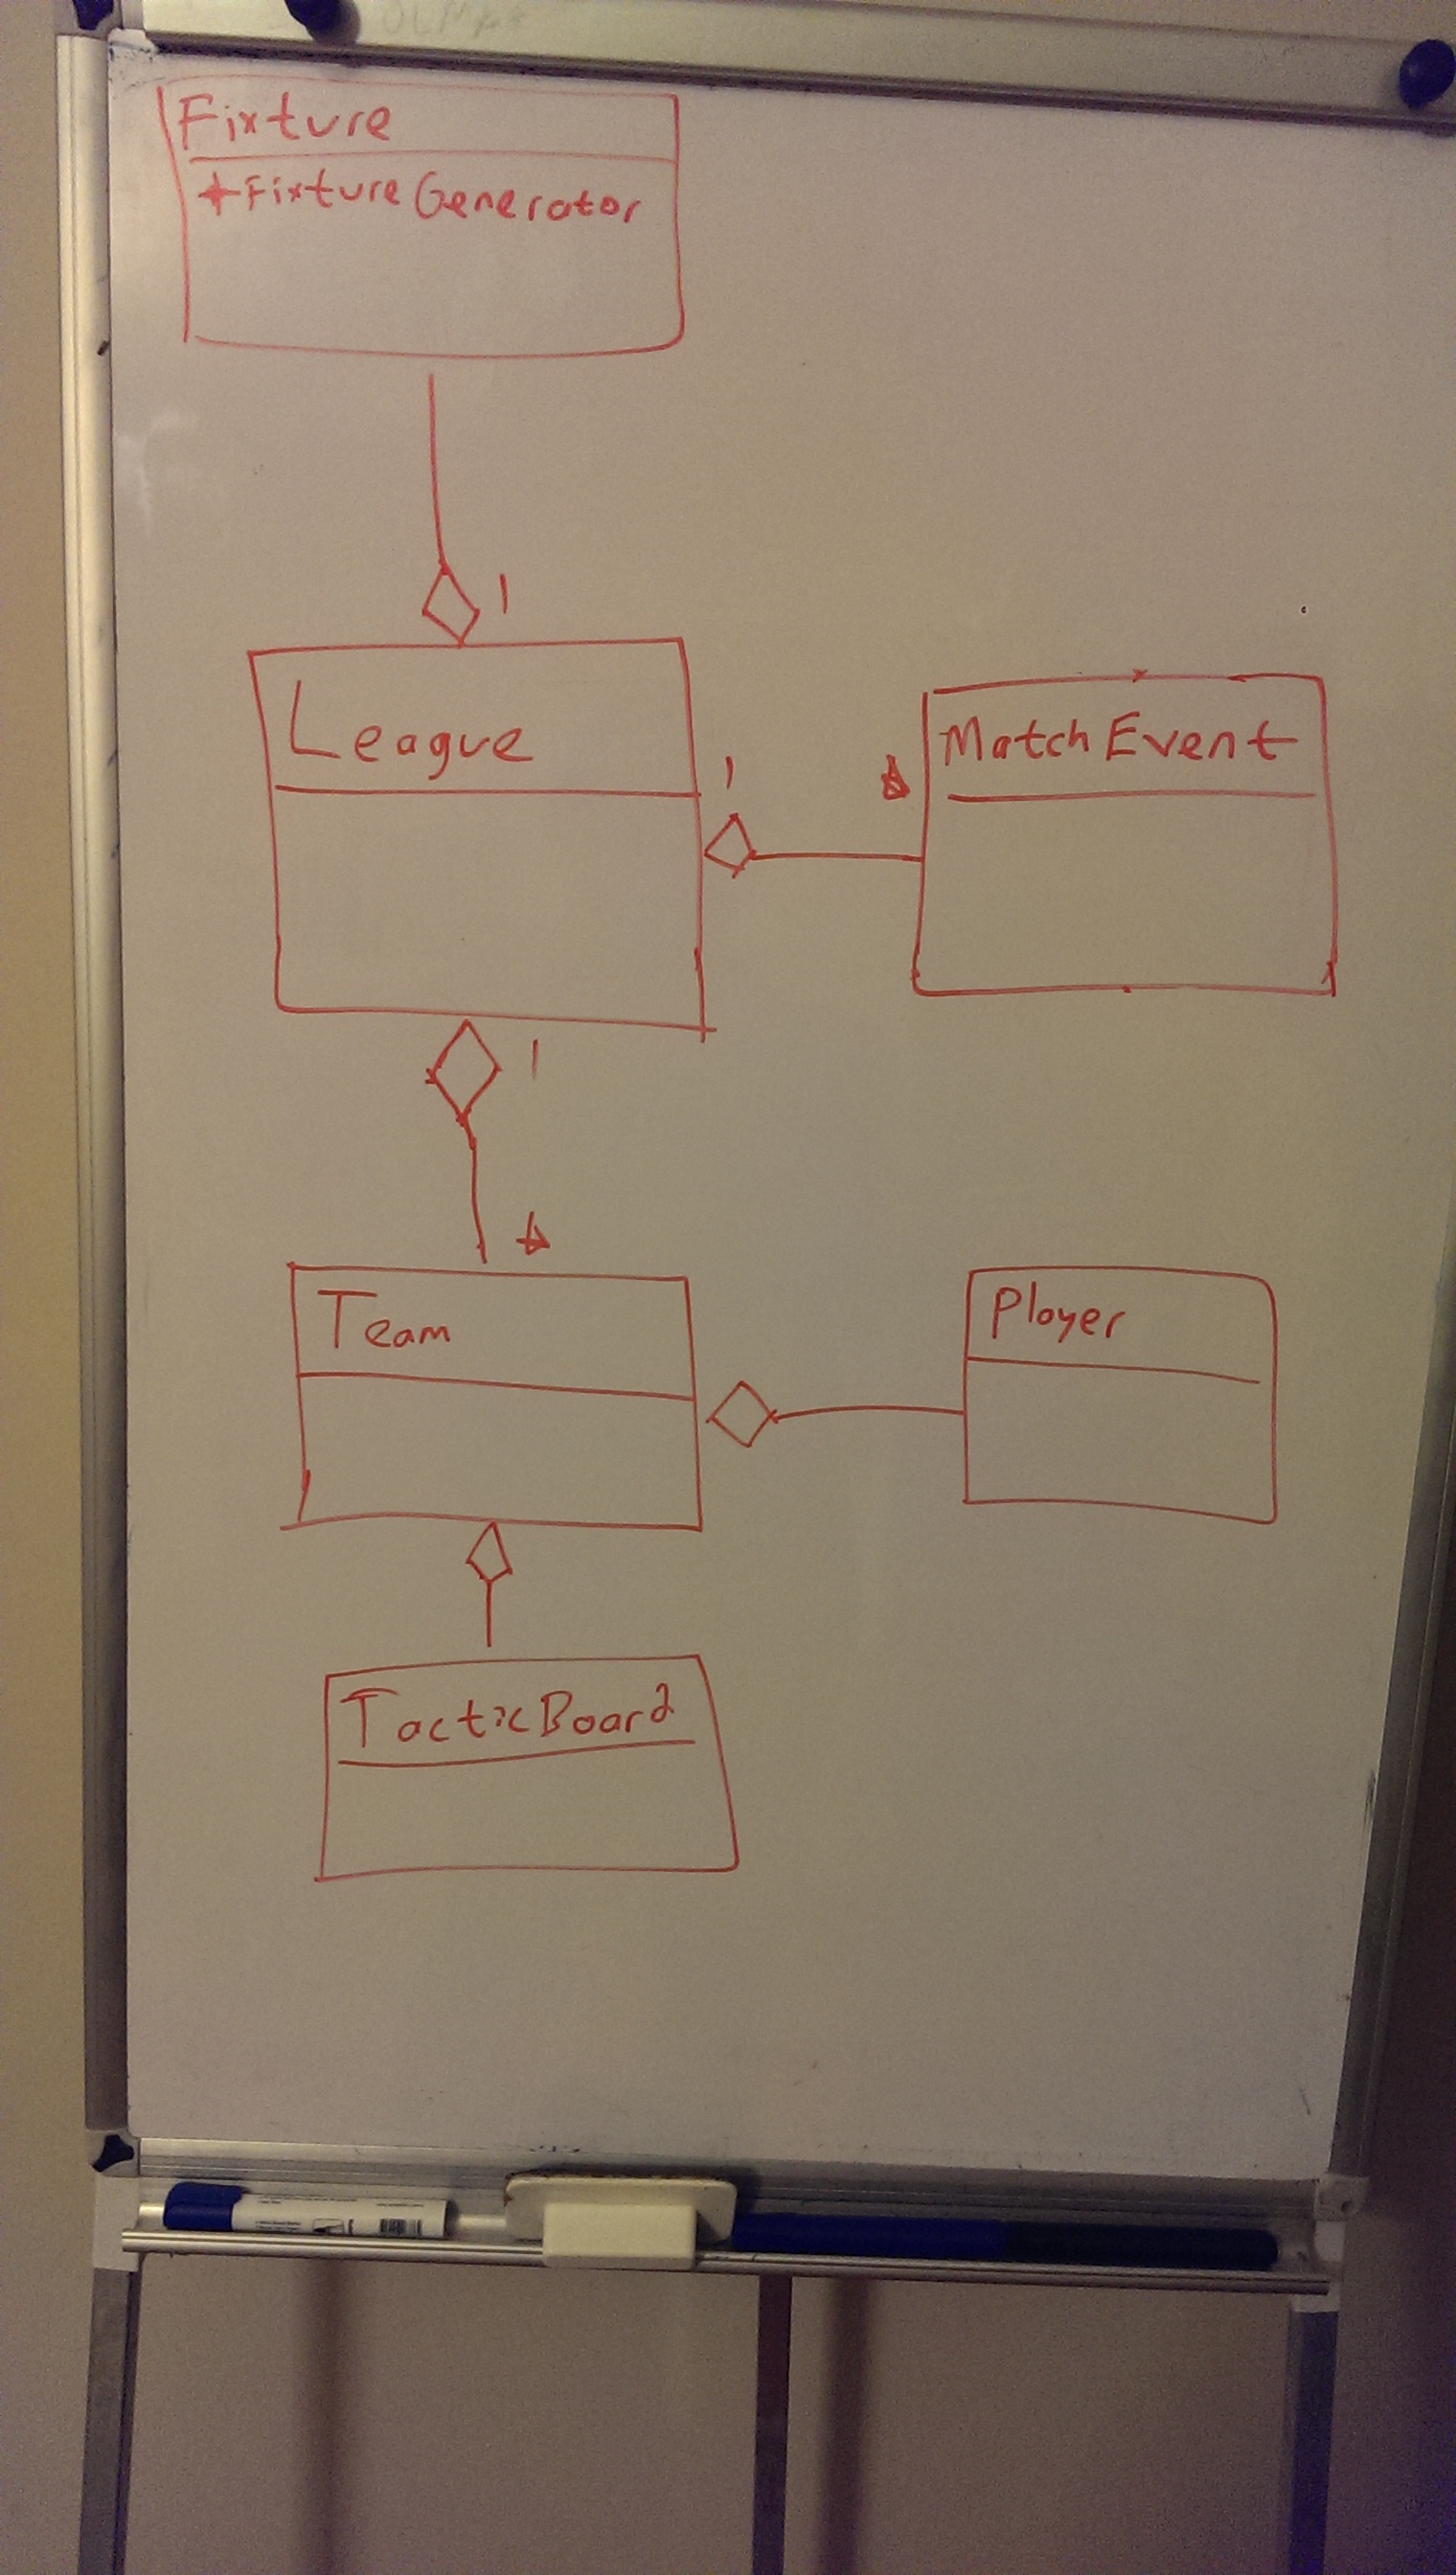 Fixture
+FixtureGenerator
1
League
1
MatchEvent
1
Team
Player
TacticBoard